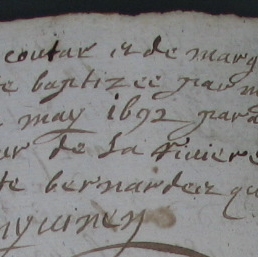 coutar et de marg
te baptizee par m
may 1692 para
ur de la riviere
te bernardez qu